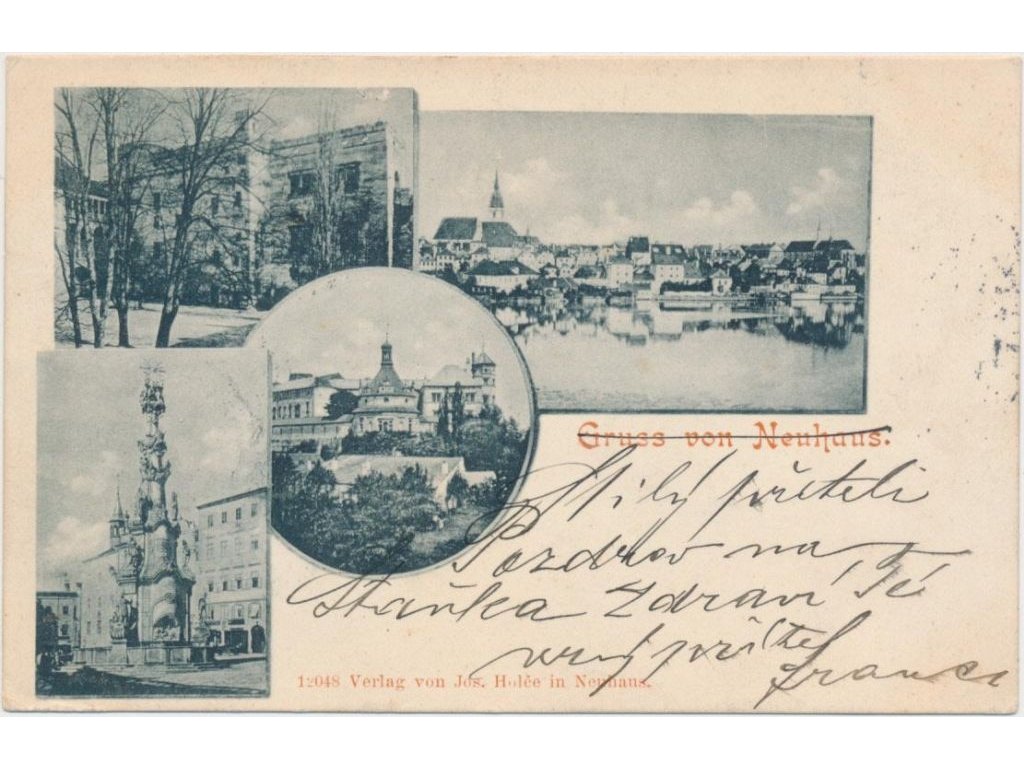 Gruss von Neuhaus.
Milý příteli
Pozdrav na
Staňka Zdraví Tě
přítel
12048 Verlag von Jos. Holče in Neuhaus.